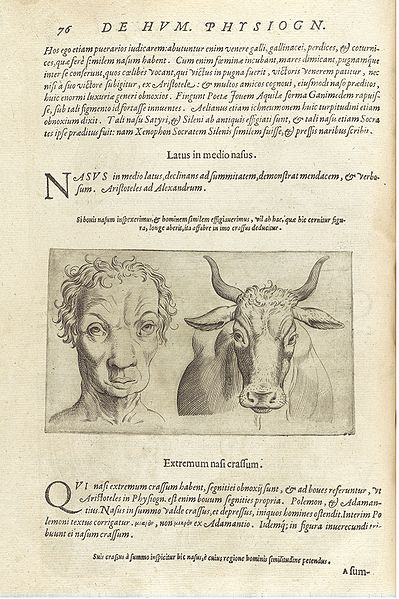 76 DE HVM. PHYSIOGN.
Hos ego etiam puerarios iudicarem: abutuntur enim venere galli, gallinacei, perdices, & coturni-
ces, quæ ferè similem nasum habent. Cum enim fœminæ incubant, mares dimicant, pugnamque
inter se conserunt, quos cælibes vocant, qui victus in pugna fuerit, victoris venerem patitur, nec
nisi à suo victore subigitur, ex Aristotele: & multos amicos cognoui, eiusmodi naso præditos,
huic enormi luxuriæ generi obnoxios. Fingunt Poetæ Iouem Aquilæ forma Ganimedem rapuis-
se, sub tali figmento id fortasse innuentes. Aelianus etiam ichneumonem huic turpitudini etiam
obnoxium dixit. Tali nasu Satyri, & Sileni ab antiquis effigiati sunt, & tali nasu etiam Socra
tes ipse præditus fuit: nam Xenophon Socratem Silenis similem fuisse, & pressis naribus scribit.
Latus in medio nasus.
NASVS in medio latus, declinans ad summitatem, demonstrat mendacem, & verbo-
sum. Aristoteles ad Alexandrum.
Si bouis nasum inspexerimus, & hominem similem effigiauerimus, vil ab hac, quæ hic cernitur figu-
ra, longe aberit, ita affabre in imo crassus deducitur.
Extremum nasi crassum.
QVI nasi extremum crassum habent, segnitiei obnoxij sunt, & ad boues referuntur, vt
Aristoteles in Physiogn. est enim bouum segnities propria. Polemon, & Adaman-
tius. Nasus in summo valde crassus, et depressus, iniquos homines ostendit. Interim Po
lemoni textus corrigatur. μιαρὸν, non μικρὸν ex Adamantio. Idemq; in figura inuerecundi tri-
buunt ei nasum crassum.
Suis crassus à summo inspicitur hic nasus, è cuius regione hominis similitudine petendus.
A sum-